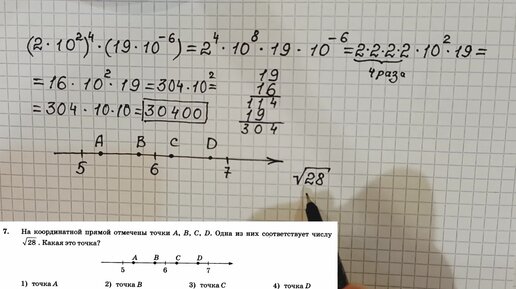 (2 · 10²)⁴ · (19 · 10⁻⁶) = 2⁴ · 10⁸ · 19 · 10⁻⁶ = 2·2·2·2 · 10² · 19 =
4 раза
= 16 · 10² · 19 = 304 · 10²
= 304 · 10 · 10 = 30400
19
16
114
19
304
A B C D
5 6 7
√28
7. На координатной прямой отмечены точки A, B, C, D. Одна из них соответствует числу
√28 . Какая это точка?
A B C D
5 6 7
1) точка A 2) точка B 3) точка C 4) точка D